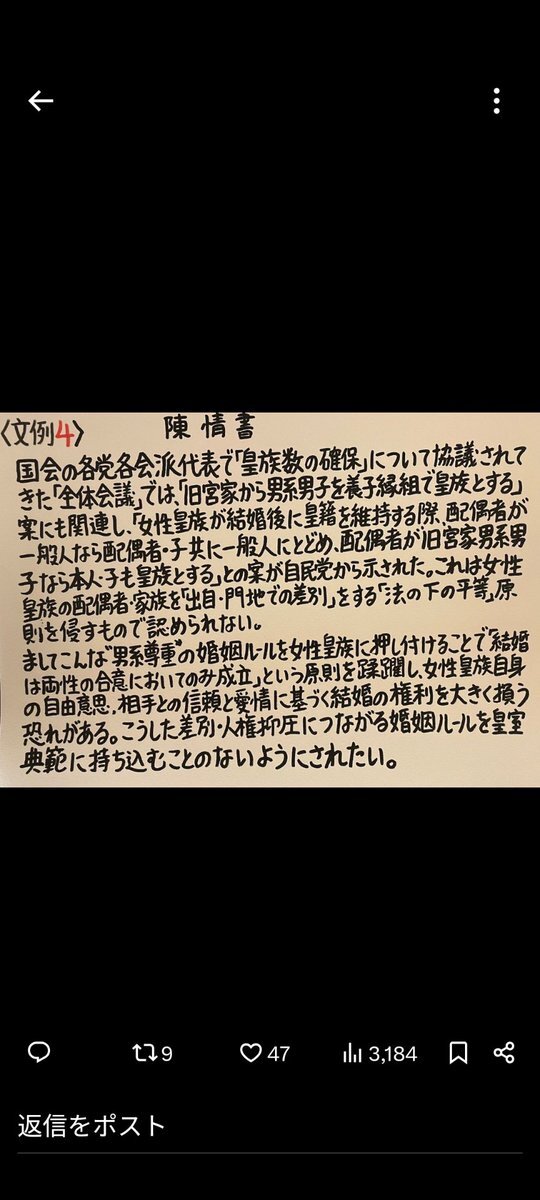 〈文例4〉 陳情書
国会の各党各会派代表で「皇族数の確保」について協議されて
きた「全体会議」では、「旧宮家から男系男子を養子縁組で皇族とする」
案にも関連し、「女性皇族が結婚後に皇籍を維持する際、配偶者が
一般人なら配偶者・子共に一般人にとどめ、配偶者が旧宮家男系男
子なら本人・子も皇族とする」との案が自民党から示された。これは女性
皇族の配偶者・家族を「出自・門地での差別」をする「法の下の平等」原
則を侵すもので認められない。
ましてこんな"男系尊重"の婚姻ルールを女性皇族に押し付けることで「結婚
は両性の合意においてのみ成立」という原則を蹂躙し、女性皇族自身
の自由意思、相手との信頼と愛情に基づく結婚の権利を大きく損う
恐れがある。こうした差別・人権抑圧につながる婚姻ルールを皇室
典範に持ち込むことのないようにされたい。
9 47 3,184
返信をポスト